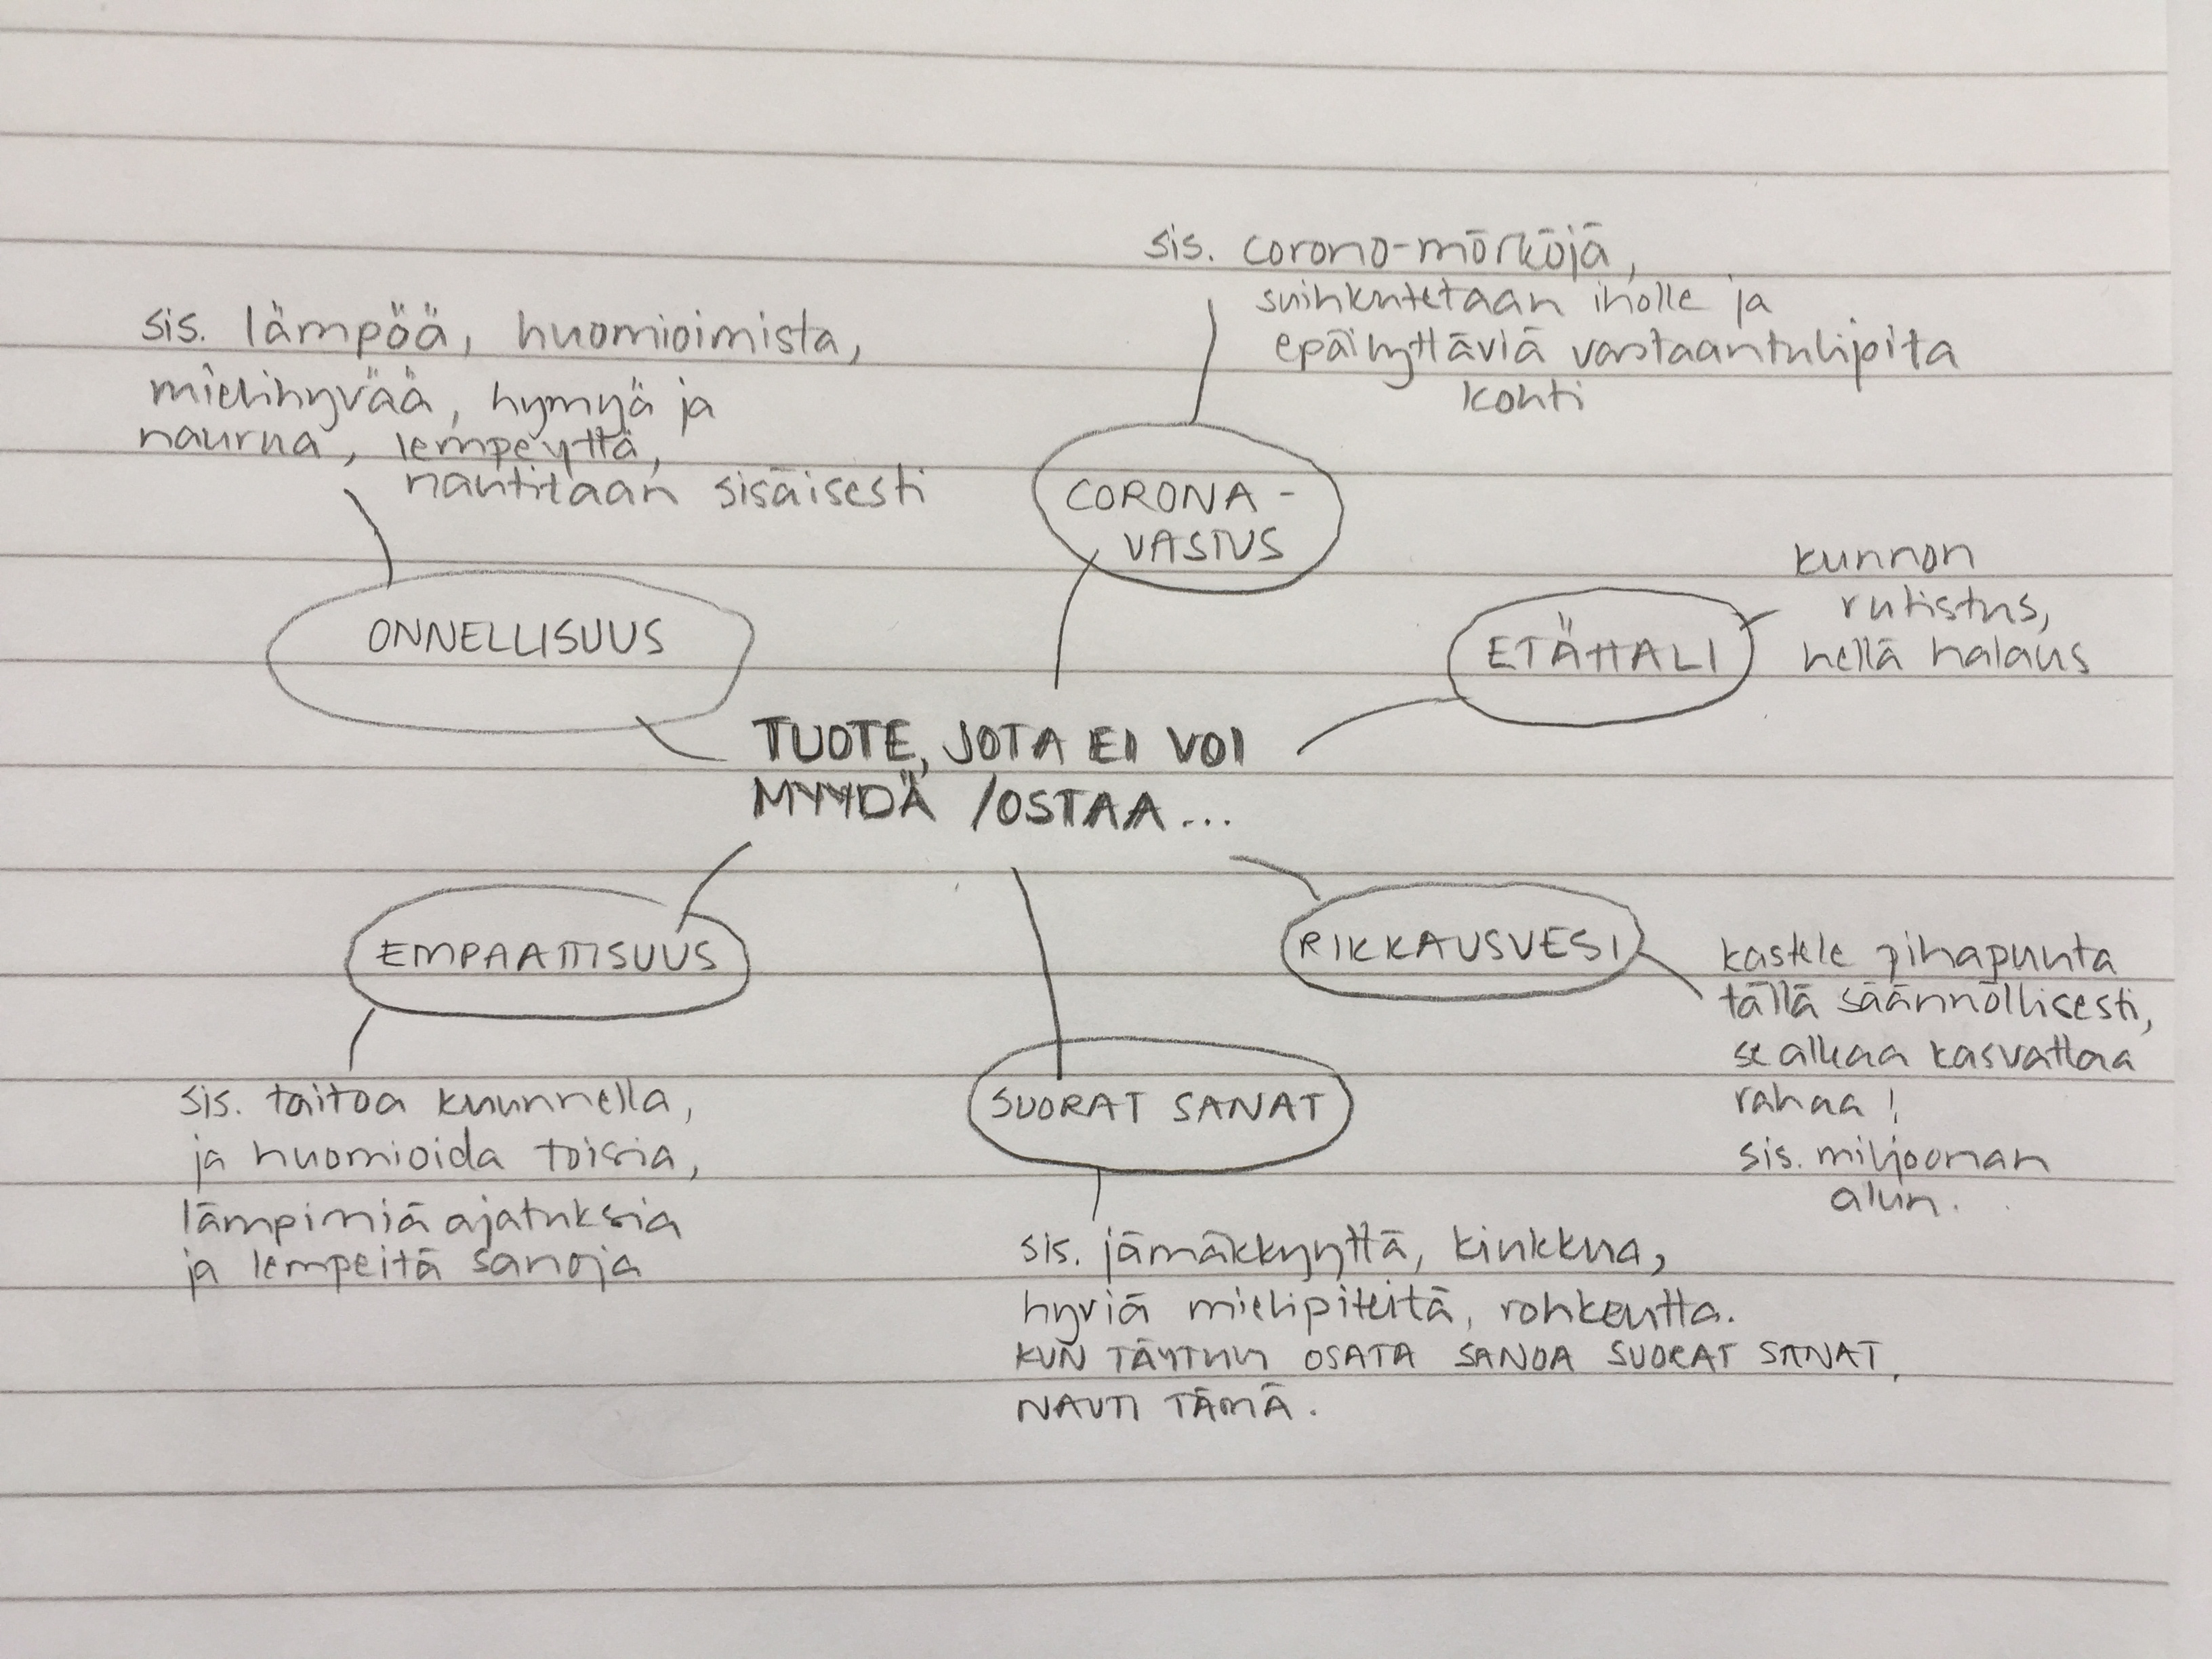 sis. corona-mörköjä,
suihkutetaan iholle ja
epäilyttäviä vastaantulijoita
kohti
sis. lämpöä, huomioimista,
mielihyvää, hymyä ja
naurua, lempeyttä,
nautitaan sisäisesti
CORONA-
VASTUS
kunnon
rutistus,
hellä halaus
ETÄHALI
ONNELLISUUS
TUOTE, JOTA EI VOI
MYYDÄ /OSTAA...
EMPAATTISUUS
RIKKAUSVESI
kastele pihapuuta
tällä säännöllisesti,
se alkaa kasvattaa
rahaa!
sis. miljoonan
alun.
SUORAT SANAT
sis. taitoa kuunnella,
ja huomioida toisia,
lämpimiä ajatuksia
ja lempeitä sanoja
sis. jämäkkyyttä, kiukkua,
hyviä mielipiteitä, rohkeutta.
KUN TÄYTYY OSATA SANOA SUORAT SANAT,
NAUTI TÄMÄ.